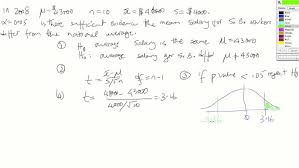 in 2008 μ=43000 n=10 x̄=$48000 s=$4000.
α=0.05 is there sufficient evidence the mean salary for S.D.
differ from the national average.
① H₀ average salary is the same μ=43000
Ha: average salary for S.D. differ μ≠43000
② t = x̄-μ / s/√n df=n-1
③ if p value < .05 reject H₀
④ t = 48000-43000 / 4000/√10 = 3.96
0 3.96